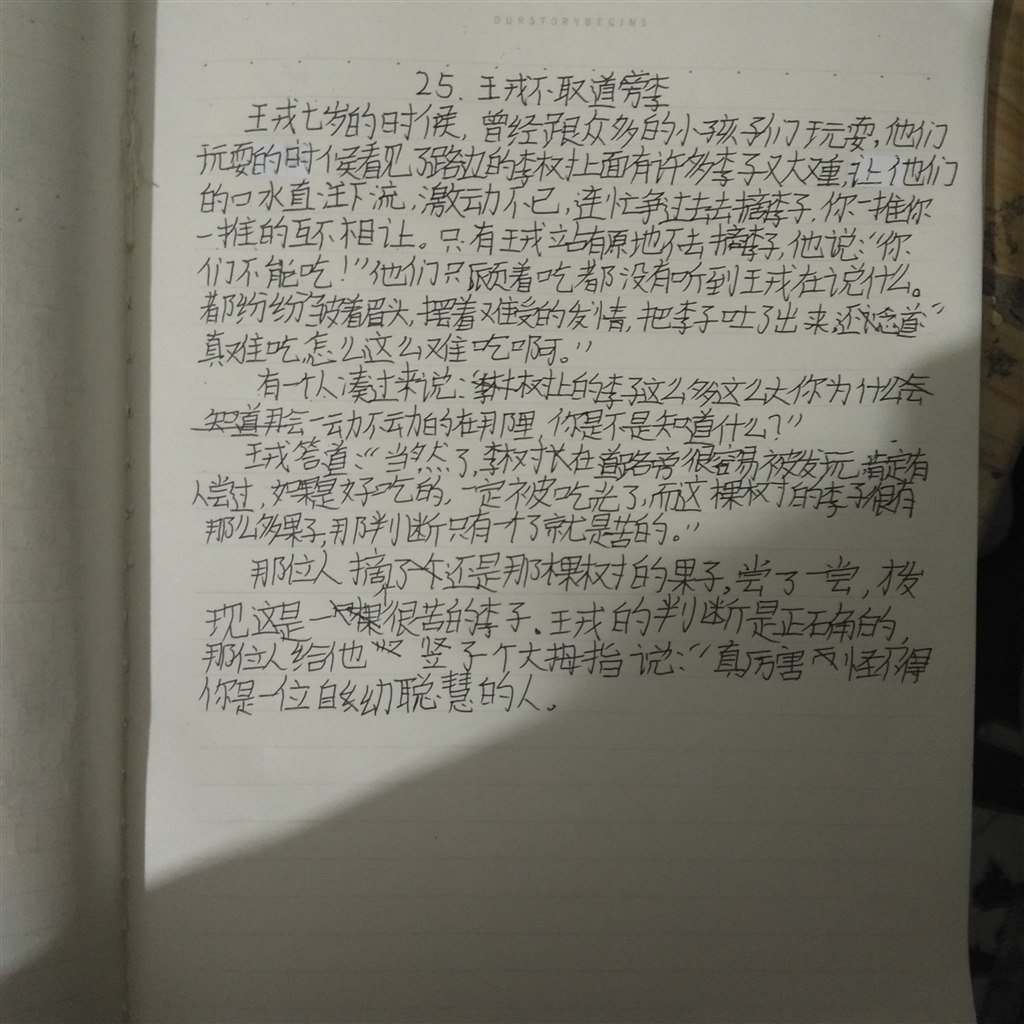 OURSTORYBEGINS
25. 王戎不取道旁李
王戎七岁的日时候,曾经跟众多的小孩子们玩耍,他们
玩耍的时候看见了路边的李树上面有许多李子又大又重,让他们
的口水直往下流,激动不已,连忙争过去去摘李子,你一推你
一推的互不相让。只有王戎站有原地不去摘李子,他说:“你
们不能吃!”他们只顾着吃都没有听到王戎在说什么。
都纷纷皱着眉头,摆着难受的发情,把李子吐了出来,还念道“
真难吃,怎么这么难吃啊。”
有一个人凑过来说:“李树上的李子这么多这么大你为什么会
知道再会一动不动的在那里,你是不是知道什么?”
王戎答道:“当然了,李树长在道路旁很容易被发玩,肯定有
人尝过,如果是好吃的,一定被吃光了,而这棵树的李子很有
那么多果子,那判断只有一个了就是苦的。”
那位人摘了个还是那棵树的果子,尝了一尝,才发
现这是一棵很苦的李子.王戎的判断是正确的,
那位人给他竖了个大拇指说:“真厉害怪不得
你是一位自幼聪慧的人。